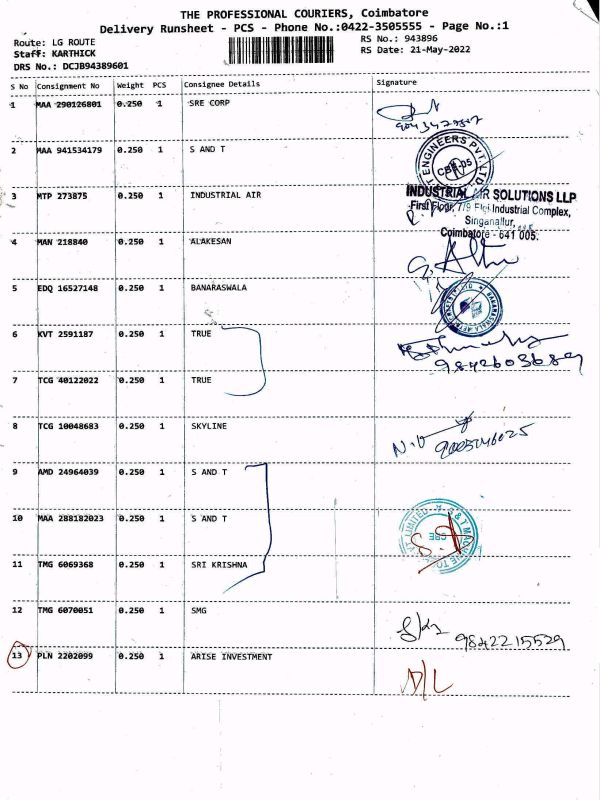 THE PROFESSIONAL COURIERS, Coimbatore
Delivery Runsheet - PCS - Phone No.:0422-3505555 - Page No.:1
Route: LG ROUTE
RS No.: 943896
Staff: KARTHICK
RS Date: 21-May-2022
DRS No.: DCJB94389601
S No Consignment No Weight PCS Consignee Details Signature
1 MAA 290126801 0.250 1 SRE CORP
2 MAA 941534179 0.250 1 S AND T
ENGINEERS PVT. LTD
CBE-05
3 MTP 273875 0.250 1 INDUSTRIAL AIR
INDUSTRIAL AIR SOLUTIONS LLP
First Floor, 7/9 Industrial Complex,
Singanallur,
Coimbatore - 641 005.
4 MAN 218840 0.250 1 ALAKESAN
5 EDQ 16527148 0.250 1 BANARASWALA
6 KVT 2591187 0.250 1 TRUE
9842603689
7 TCG 40122022 0.250 1 TRUE
8 TCG 10048683 0.250 1 SKYLINE
N.V
9 AMD 24964039 0.250 1 S AND T
10 MAA 288182023 0.250 1 S AND T
S & T MACHINE
LIMITED
CBE
11 TMG 6069368 0.250 1 SRI KRISHNA
12 TMG 6070051 0.250 1 SMG
9842215529
13 PLN 2202099 0.250 1 ARISE INVESTMENT
D/L